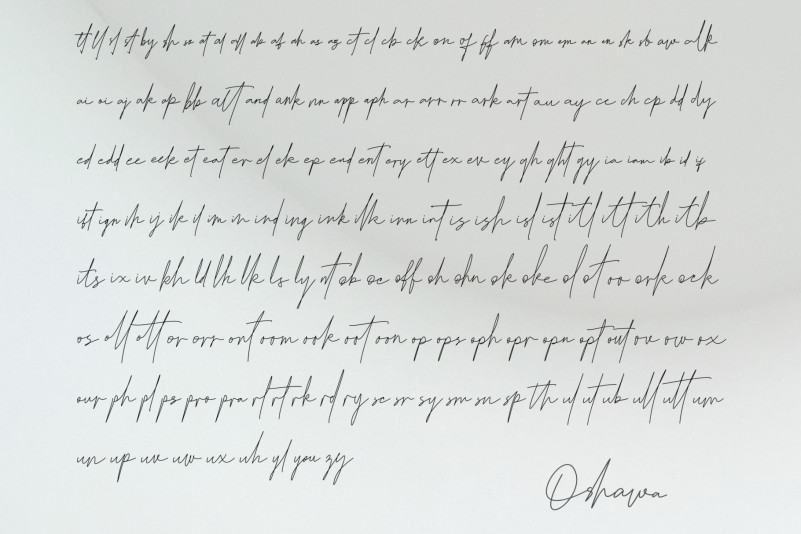 tt ll st st by sh so at al all ab af ah as ag ct cl cb ck on of ff am om em an en sk sb aw alk
ai oi aj ak ap bb att and ank nn app aph ar arr rr ark art au ay cc ch cp dd dy
ed edd ee eek et eat er el ek ep end ent ery ett ex ev ey gh ght gy ia iam ib id if
ift ign ih ij ik il im in ind ing ink illk inn int is ish isl ist itl itt ith itb
its ix iv kh ld lh lk ls ly nt ob oc off oh ohn ok oke ol ot oo ork ock
os oll ott or orr ont oom ook oot oon op ops oph opr opn opt out ov ow ox
our ph pl ps pro pra rl rt rk rd ry sc sr sy sm sn sp th ul ut ub ull utt um
un up uv uw ux uh yl you zy
Oshawa